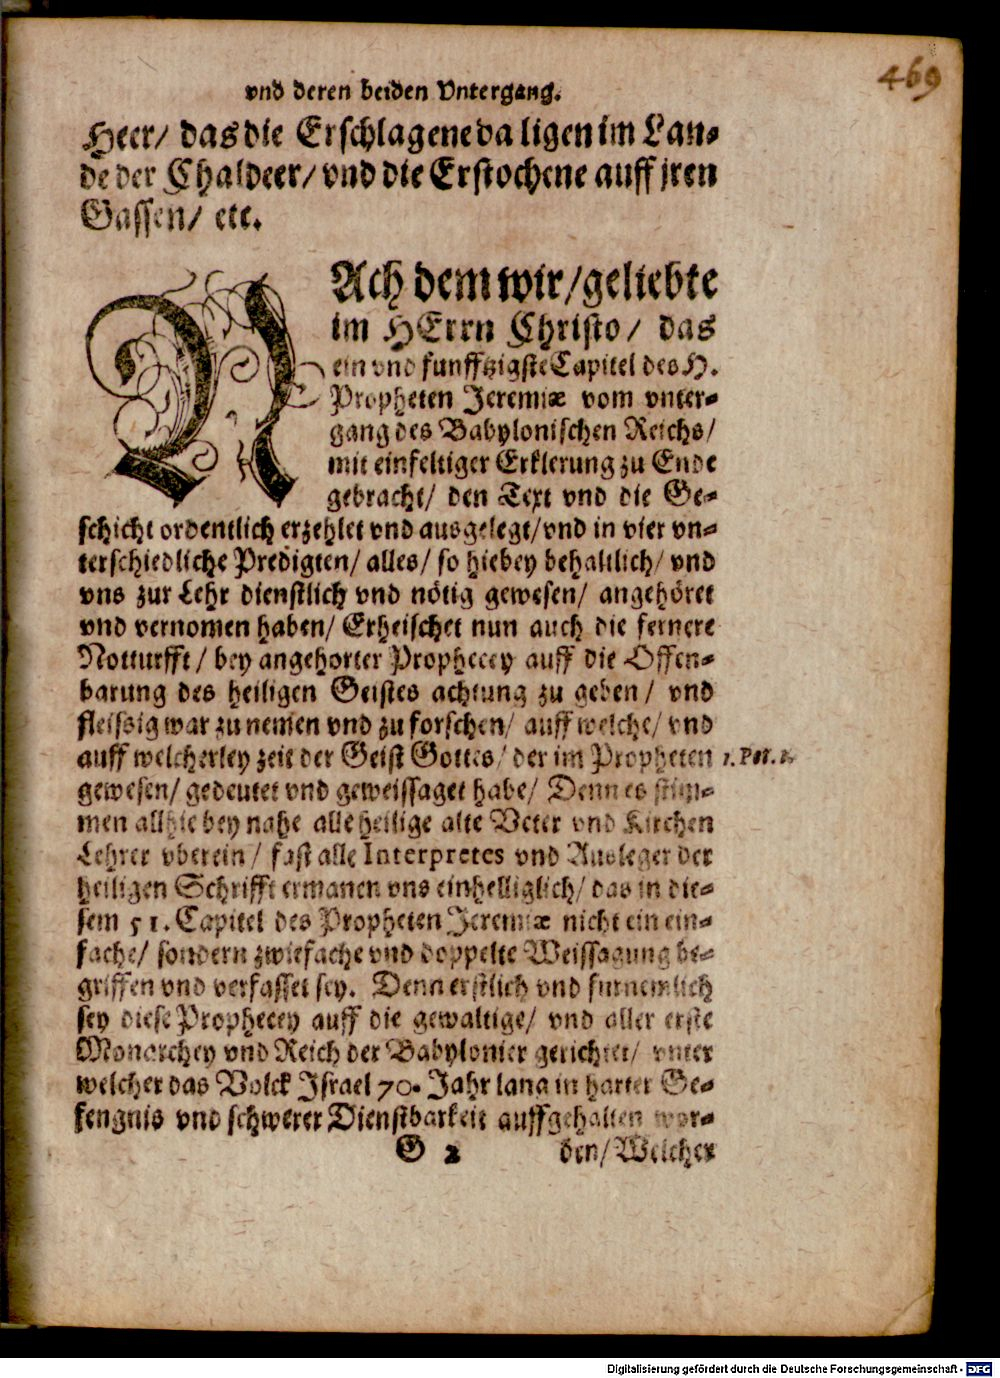 469
vnd deren beiden Vntergang.
Heer/ das die Erschlagene da ligen im Lan-
de der Chaldeer/ vnd die Erstochene auff jren
Gassen/ etc.
NAch dem wir/ geliebte
im HErrn Christo/ das
ein vnd funfftzigste Capitel des H.
Propheten Jeremiæ vom vnter-
gang des Babylonischen Reichs/
mit einfeltiger Erklerung zu Ende
gebracht/ den Text vnd die Ge-
schicht ordentlich erzehlet vnd ausgelegt/ vnd in vier vn-
terschiedliche Predigten/ alles/ so hiebey behaltlich/ vnd
vns zur Lehr dienstlich vnd nötig gewesen/ angehöret
vnd vernomen haben/ Erheischet nun auch die fernere
Notturfft/ bey angehorter Prophecey auff die Offen-
barung des heiligen Geistes achtung zu geben/ vnd
fleissig war zu nemen vnd zu forschen/ auff welche/ vnd
auff welcherley zeit der Geist Gottes/ der im Propheten
1. Pet. 1.
gewesen/ gedeutet vnd geweissaget habe/ Denn es stim-
men allhie bey nahe alle heilige alte Veter vnd Kirchen
Lehrer vberein/ fast alle Interpretes vnd Ausleger der
heiligen Schrifft ermanen vns einhelliglich/ das in die-
sem 51. Capitel des Propheten Jeremiæ nicht ein ein-
fache/ sondern zwiefache vnd doppelte Weissagung be-
griffen vnd verfasset sey. Denn erstlich vnd furnemlich
sey diese Prophecey auff die gewaltige/ vnd aller erste
Monarchey vnd Reich der Babylonier gerichtet/ vnter
welcher das Volck Israel 70. Jahr lang in harter Ge-
fengnis vnd schwerer Dienstbarkeit auffgehalten wor-
G 2 den/ Welcher
Digitalisierung gefördert durch die Deutsche Forschungsgemeinschaft - DFG